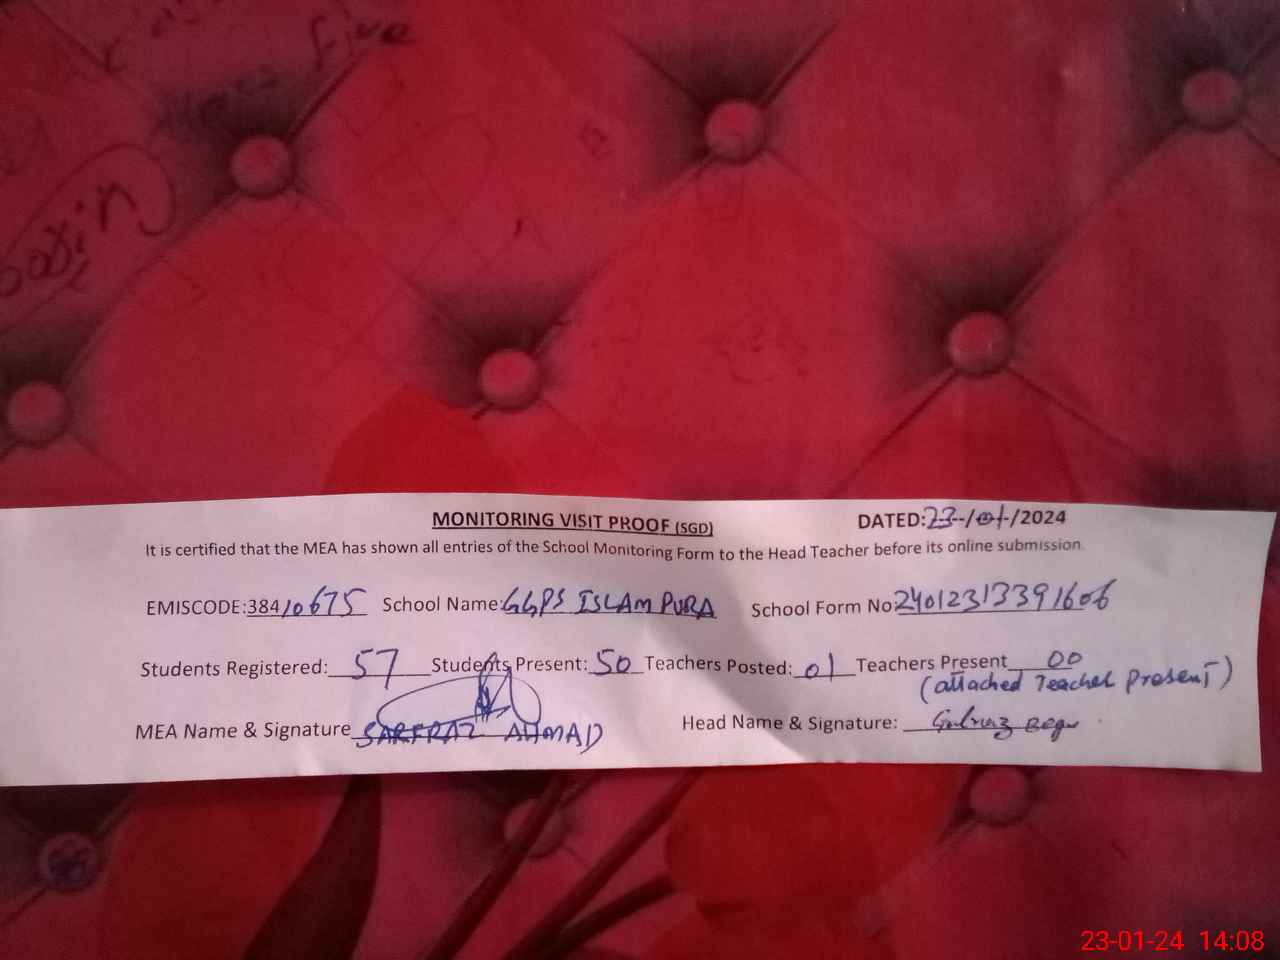 five
MONITORING VISIT PROOF (SGD)
DATED:23-/01-/2024
It is certified that the MEA has shown all entries of the School Monitoring Form to the Head Teacher before its online submission.
EMISCODE:38410675 School Name:GGPS ISLAM PURA School Form No:24012313391606
Students Registered: 57 Students Present: 50 Teachers Posted: 01 Teachers Present 00
(attached Teacher present)
MEA Name & Signature SARFRAZ AHMAD Head Name & Signature:
23-01-24 14:08